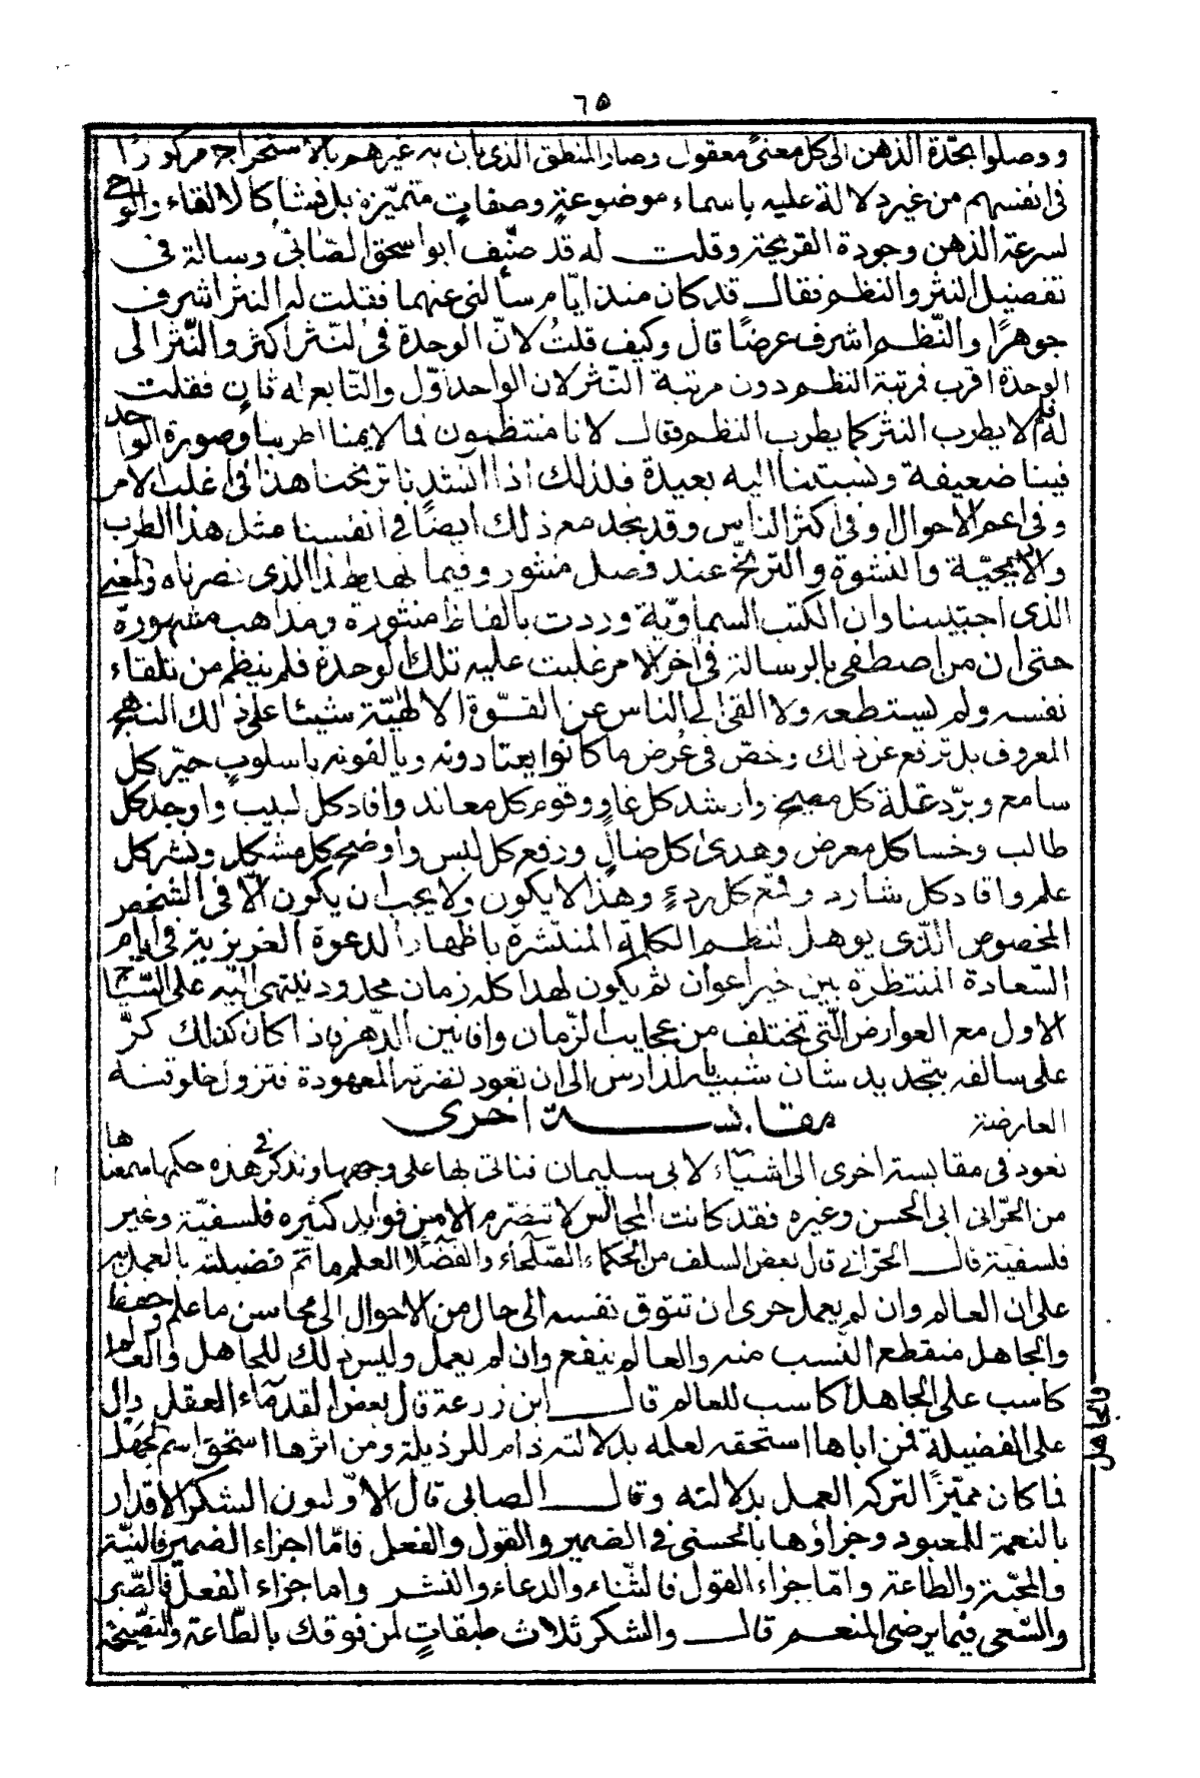 ٦٥
ووصلوا بحدّة الذهن الى كل معنىً معقول وصار المنطق الذى بان به غيرهم بالاستخراج مركوزًا
فى انفسهم من غير دلالة عليه باسماء موضوعةٍ وصفاتٍ متميّزة بل فشا كالالقاء والوحى
لسرعة الذهن وجودة القريحة وقلت له قد صنّف ابو اسحق الصّابئ رسالة فى
تفضيل النثر والنظم فقال قد كان منذ ايّام سألنى عنهما فقلت له النثر اشرف
جوهرًا والنّظم اشرف عرضًا قال وكيف قلتُ لانّ الوحدة فى النّثر اكثر والنّثر الى
الوحدة اقرب فمرتبة النظم دون مرتبة النّثر لان الواحد اوّل والتّابع له ثانٍ فقلت
له فلم لا يطرب النثر كما يطرب النظم فقال لانا منتظمون فما لايمنا اطربنا وصورة الواحد
فينا ضعيفة ونسبتنا اليه بعيدة فلذلك اذا انشدنا ترنحنا هذا فى اغلب الامر
وفى اعم الاحوال وفى اكثر الناس وقد نجد مع ذلك ايضًا فى انفسنا مثل هذا الطرب
والاريحيّة والنشوة والترنّح عند فصل منثور وفيما لهذا الذى نصرناه والمعنى
الذى اجتبيناه ان الكتب السماويّة وردت بالفاظ منثورة ومذاهب مشهورة
حتى ان من اصطفى بالرسالة فى اخر الامر غلبت عليه تلك الوحدة فلم ينظم من تلقاء
نفسه ولم يستطعه ولا القى الى الناس عن القوّة الالهيّة شيئا على ذلك النهج
المعروف بل ترفع عن ذلك وخصّ فى عُرض ما كانوا يعتادونه ويالفونه باسلوبٍ حيّر كل
سامع وبرّد غلة كل مصيخ وارشد كل غاوٍ وقوم كل معاند وافاد كل لبيب واوجد كل
طالب وخسا كل معرض وهدى كل ضالٍ ورفع كل لبس واوضح كل مشكل ونشر كل
علم وافاد كل شارد وقمع كل ردءٍ وهذا لا يكون ولا يجب ان يكون الّا فى الشخص
المخصوص الّذى يوهل لنظم الكلمة المنتشرة باظهار الدعوة الغريزية فى ايام
السّعادة المنتظرة بين خير اعوان ثم يكون لهذا كله زمان محدود ينتهى اليه على السّياج
الاول مع العوارض الّتى تختلف من عجايب الزّمان وافانين الدّهر فاذا كان كذلك كرَّ
على سالفه بتجديد شان شبيه بالدارس الى ان تعود نضرته المعهودة فتزول خلوقته
العارضة
مقابسة اخرى
نعود فى مقابسة اخرى الى اشيآء لابى سليمان فناتى بها على وجهها ونذكر فى هذه حكما سمعناها
من الحرّانى ابى الحسن وغيره فقد كانت المجالس لا تتصرّم الا من فوايد كثيره فلسفيّة وغير
فلسفيّة قال الحرّانى قال بعض السلف من الحكماء الصّلحاء والفضلا العلم ما تم فضيلته بالعمل به
على ان العالم وان لم يعمل حرى ان تتوق نفسه الى حال من الاحوال الى محاسن ما علم وحفظ
والجاهل منقطع النّسب منه والعالم ينفع وان لم يعمل وليس ذلك للجاهل والعالم
كاسب على الجاهل
والجاهل
كاسب للعالم قال ابن زرعة قال بعض القدمآء العقل دالّ
على الفضيلة فمن اباها استحقه لعلمه بدلالته ذام للرذيلة ومن اثرها استحق اسم الجهل
فما كان مميّزًا لتركه العمل بدلالته وقال الصابى قال الاوّلون الشكر الاقرار
بالنعمة للمعبود وجزاؤها بالحسنى فى الضمير والقول والفعل فامّا اجزاء الضمير فالنيّة
والمحبّة والطاعة وامّا جزاء القول فالثّناء والدعاء والنشر واما جزاء الفعل فالصّبر
والسّعى فيما يرضى المنعم قال والشكر ثلاث طبقاتٍ لمن فوقك بالطّاعة والنّصيحة